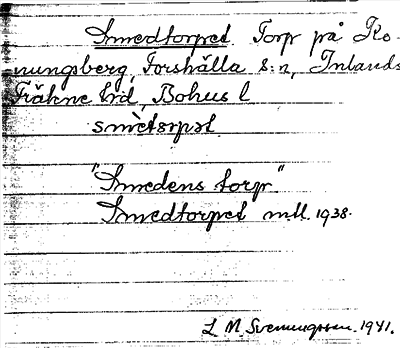 Smedtorpet. Torp på Ko-
nungsberg, Forshälla s:n, Inlands
Fräkne hrd, Bohus l
smètorpət
"Smedens torp"
Smedtorpet mtl. 1938.
L. M. Svenungsson. 1941.